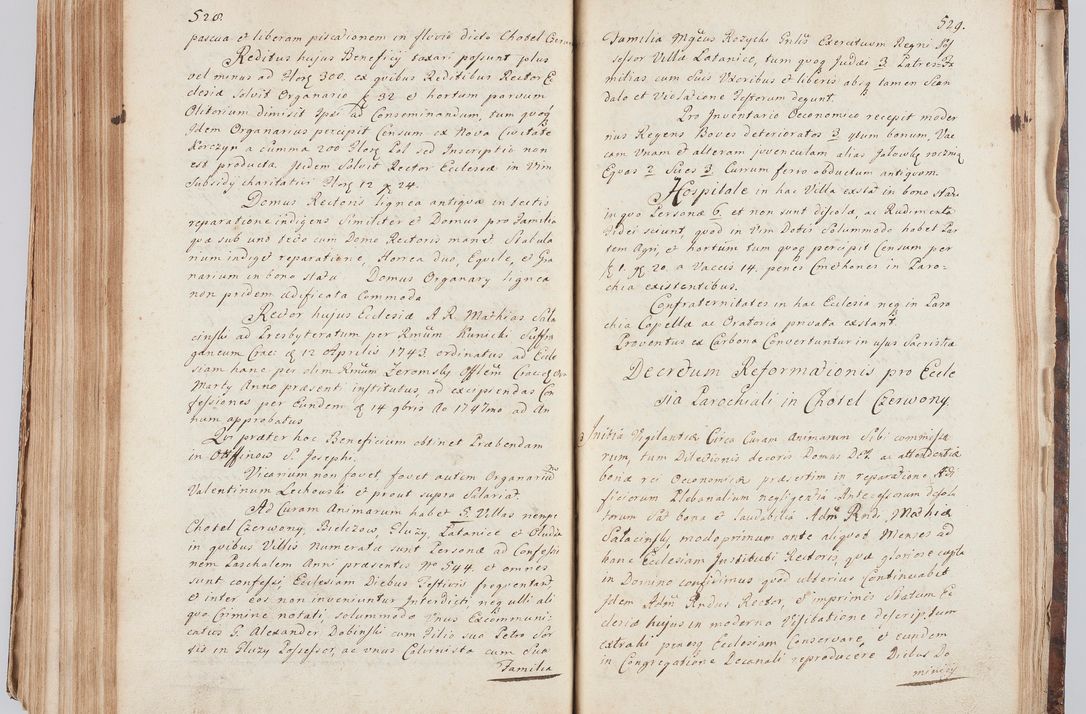 528.
pascua et liberam piscationem in fluvio dicto Chotel Czerwony
Reditus hujus Beneficij taxari possunt plus
vel minus ad Flor 300. ex quibus Reditibus Rector Ec
clesiæ solvit Organario 32 et hortum parvum
Olitorium dimisit Ipsi ad Conseminandum, tum quoq
Idem Organarius percipit Censum ex Nova Civitate
Korczyn a summa 200 Flor Pol sed Inscriptio non
est producta. Itidem Solvit Rector Ecclesiæ in Vim
Subsidij charitativi Flor 12 24.
Domus Rectoris lignea antiqua in tectis
reparatione indigens Similiter et Domus pro Familia
quæ sub uno tecto cum Domo Rectoris manet Stabula
num indiget reparatione, Horrea duo, Equile, et Gra
narium in bono statu Domus Organary lignea
non pridem ædificata Commoda
Rector hujus Ecclesiæ A. R. Mathias Sala
ciński ad Presbyteratum per Rmum Kunicki Suffra
ganeum Crac: 12 Aprilis 1743 ordinatus ad Eccle
siam hanc per olim Rmum Zeromsky Offlem Crac
Marty Anno præsenti institutus, ad excipiendas Con
fessiones per Eundem 14 9bris Ao 1747mo ad An
num approbatus
Qui præter hoc Beneficium obtinet Præbendam
in S. Josephi.
Vicarium non fovet, fovet autem Organarium
Valentinum Lechowski et prout supra Salariat
Ad Curam Animarum habet 5 Villas nempe
Chotel Czerwony, Bielczow, Gluzy, Łatanice et
in quibus Villis Numeratæ sunt Personæ ad Confessio
nem Paschalem Anni præsentis No 544. et omnes
sunt confessi Ecclesiam Diebus Festivis frequentant
et inter eos non inveniuntur Interdicti, neq ulli ali
quo Crimine notati, solummodo Unus Excommuni
catus G. Alexander Dobinski cum Filio suo Petro
in Gluzy Possessor, ac unus Calvinista cum Sua
Familia
529.
Familia Mgcus Rozycki Gnlis Exercituum Regni Pos
sessor Villæ Łatanice, tum quoq Judæi 3 Patres Fa
milias cum Suis Uxoribus et liberis absq tamen Scan
dalo et Violatione Festorum degunt.
Pro Inventario Oeconomico recepit moder
nus Regens Boves deterioratos 3 4tum bonum, Vac
cam Unam et alteram juvenculam alias Jałowkę rocznią
Equas 2 Sues 3. Currum ferro obductum antiquum.
Hospitale in hac Villa extat in bono statu
in quo Personæ 6. et non sunt discolæ, ac Rudimenta
Fidei sciunt, quod in Vim Dotis Solummodo habet Par
tem Agri, et hortum tum quoq percipit Censum per
1. 20. a Vaccis 14. penes Cmethones in Paro
chia existentibus.
Confraternitates in hac Ecclesia neq in Paro
chia Capellæ ac Oratoria privata extant.
Proventus ex Carbona Convertuntur in usus Sacristiæ
Decretum Reformationis pro Eccle
sia Parochiali in Chotel Czerwony
Initia Vigilantiæ Circa Curam Animarum Sibi commissa
rum, tum Dilectionis decoris Domus DEI ac attendentiæ
bonæ rei Oeconomicæ præsertim in reparatione Ædi
ficiorum Plebanalium negligentia Antecessorum desola
torum sat bona et laudabilia Admm Rndi Mathiæ
Salacinsky modo primum ante aliquot Menses ad
hanc Ecclesiam Instituti Rectoris, quæ gloriose cœpta
in Domino confidimus quod ulterius Continuabit
Idem Admm Rndus Rector, et imprimis Statum Ec
clesiæ hujus in moderna Visitatione descriptum
extrahi penesq Ecclesiam Conservare, et eundem
in Congregatione Decanali reproducere Diebus Do
minicis